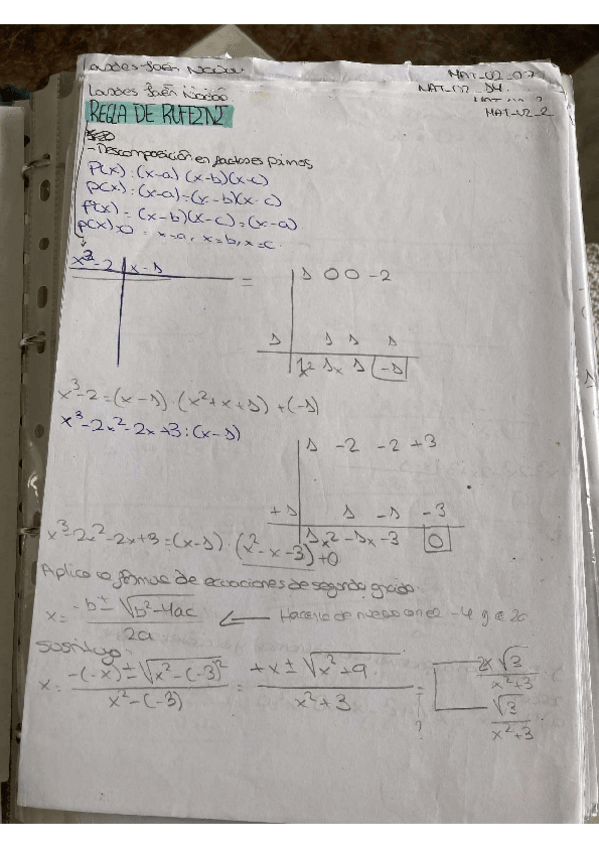 MAT-U2-
MAT-U2-2
REGLA DE RUFINI
-Descomposición en factores primos
P(x) : (x-a) (x-b)(x-c)
p(x) : (x-a) = (x-b)(x-c)
P(x) = (x-b)(x-c) = (x-a)
p(x)=0 = x=a, x=b, x=c.
x³-2 x-1 = 1 0 0 -2
1 1 1 1
x² 1x 1 -1
x³-2 = (x-1) · (x²+x+1) + (-1)
x³-2x²-2x+3 : (x-1)
1 -2 -2 +3
+1 1 -1 -3
1x² -1x -3 0
x³-2x²-2x+3 = (x-1) · (x²-x-3) +0
Aplico la fórmula de ecuaciones de segundo grado:
x = -b ± √b²-4ac / 2a ← Hacerlo de nuevo con el -4 y el 2a
Sustituyo:
x = -(-x) ± √x²-(-3)² / x²-(-3) = +x ± √x²+9 / x²+3 = ? √3 / x²+3
√3 / x²+3